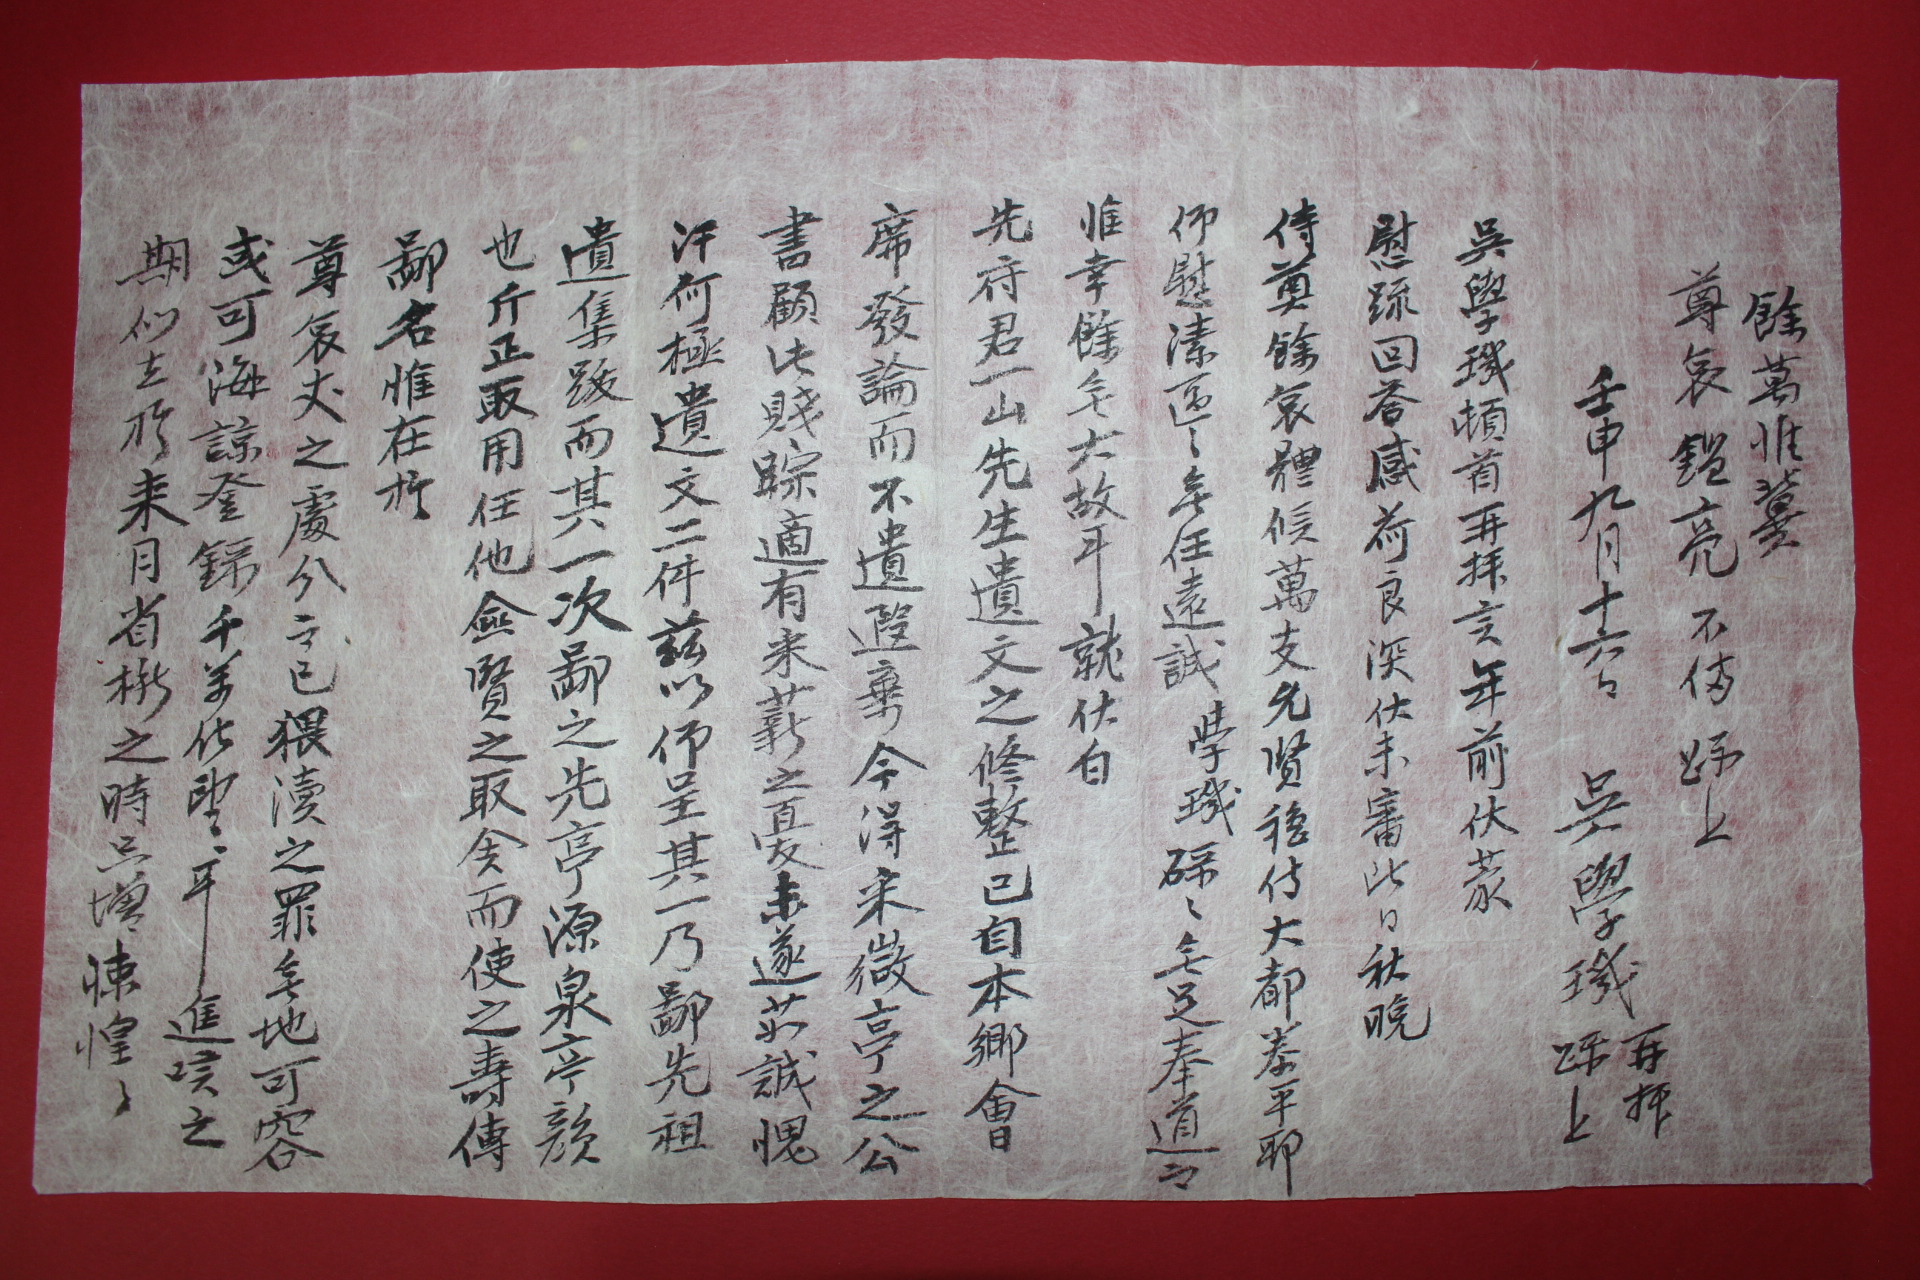 餘萬惟冀
尊哀鑑亮 不備 疏上
壬申九月十六日 吳學璣 再拜 疏上
吳學璣頓首再拜言年前伏蒙
慰疏回答感荷良深伏未審此日秋晚
侍奠餘哀體候萬支允賢穩侍大都泰平耶
仰慰溱區〻無任遠誠 學璣 碌〻無足奉道而
惟幸餘無大故耳 就伏白
先府君一山先生遺文之修整已自本鄉會
席發論而不遺遐棄今得來微亭之公
書顧此賤踪適有來薪之憂未遂共誠愧
汗何極遺文二件茲以仰呈其一乃鄙先祖
遺集跋而其一次鄙之先亭源泉亭韻
也斤正取用任他僉賢之取舍而使之壽傳
鄙名惟在於
尊哀丈之處分而已猥瀆之罪無地可容
或可海諒登錄千萬伏望〻耳 進唉之
期似在於來月省楸之時只增悚惶〻